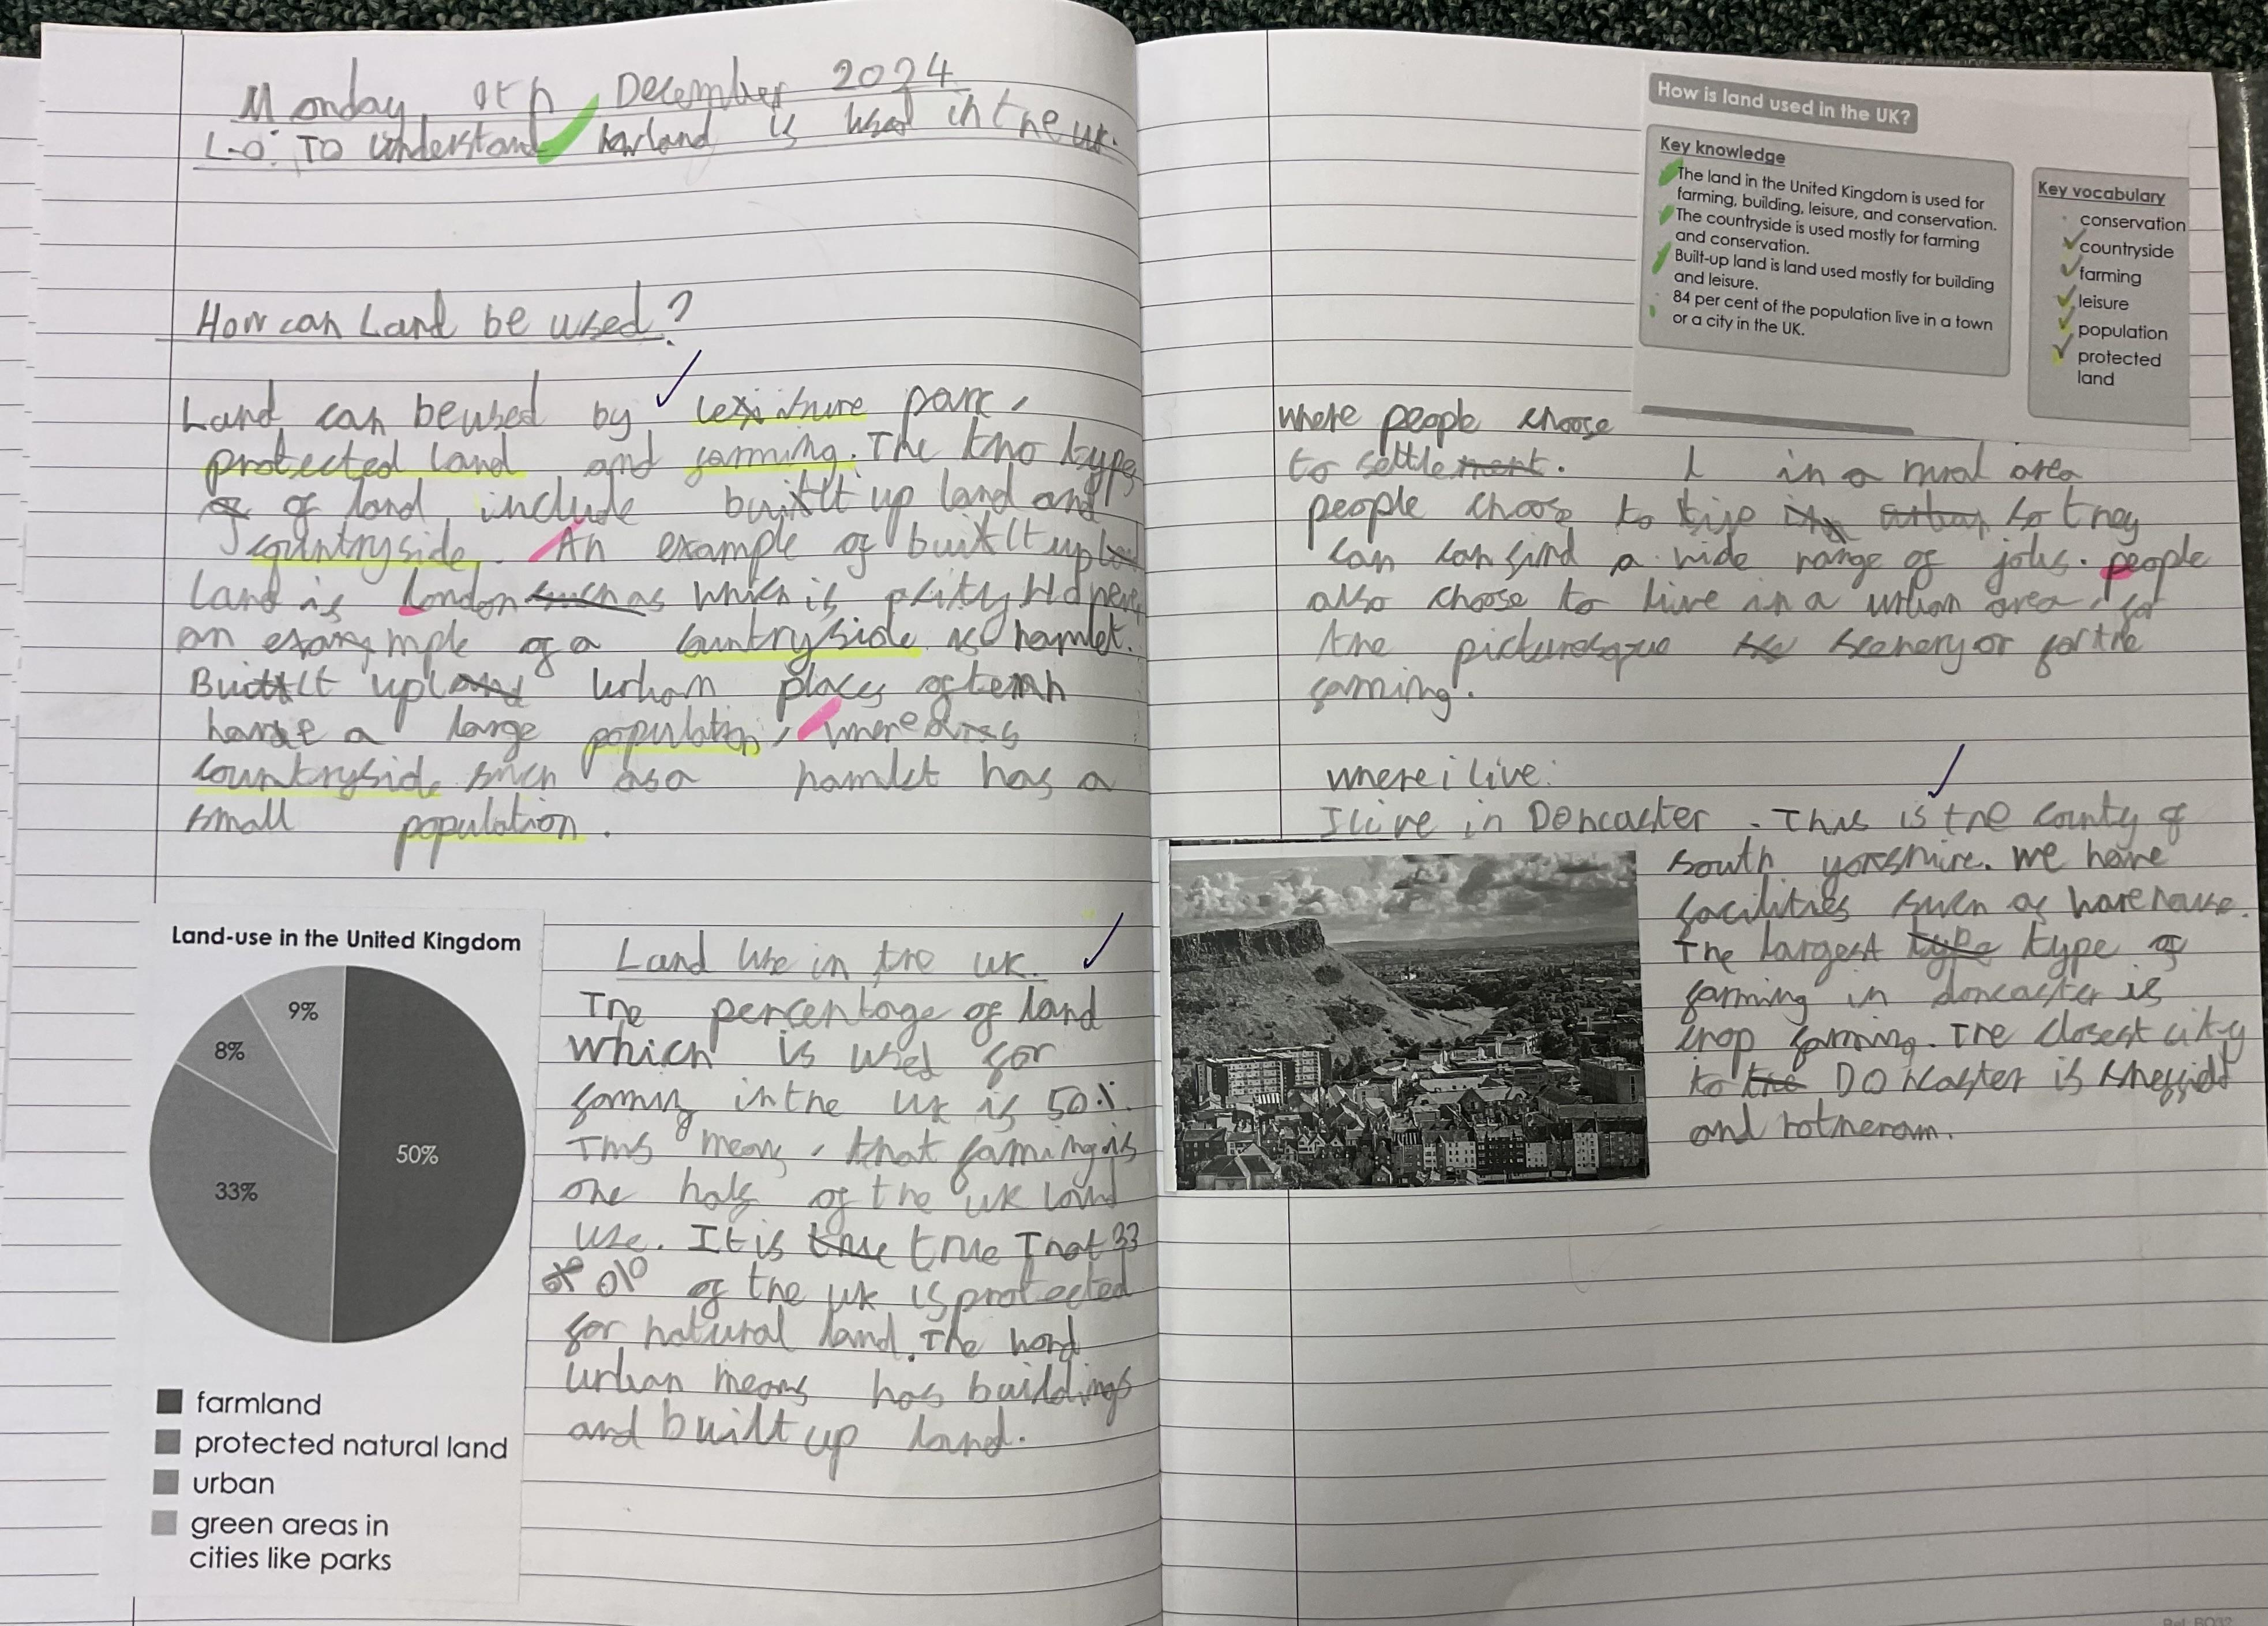 Monday 9th December 2024
L.O: To understand how land is used in the uk.
How can Land be used?
Land can be used by leisure parc,
protected land and farming. The two types
of land include built up land and
countryside. An example of built up
land is london such as which is a city. However,
an example of a countryside is hamlet.
Built up land urban places often
have a large population, whereas
countryside such as a hamlet has a
small population.
Land-use in the United Kingdom
9%
8%
50%
33%
farmland
protected natural land
urban
green areas in
cities like parks
Land use in the uk.
The percentage of land
which is used for
farming in the uk is 50%.
This means, that farming is
one half of the uk land
use. It is true true That 33
% of the uk is protected
for natural land. The word
urban means has buildings
and built up land.
How is land used in the UK?
Key knowledge
The land in the United Kingdom is used for
farming, building, leisure, and conservation.
The countryside is used mostly for farming
and conservation.
Built-up land is land used mostly for building
and leisure.
84 per cent of the population live in a town
or a city in the UK.
Key vocabulary
conservation
countryside
farming
leisure
population
protected
land
where people choose
to settlement. in a rural area
people choose to live in urban so they
can can find a wide range of jobs. people
also choose to live in a urban area, for
the picturesque scenery or for the
farming.
where i live:
I live in Doncaster. This is the county of
south yorkshire. We have
facilities such as warehouse.
The largest type type of
farming in doncaster is
crop farming. The closest city
to the Doncaster is sheffield
and rotheram.